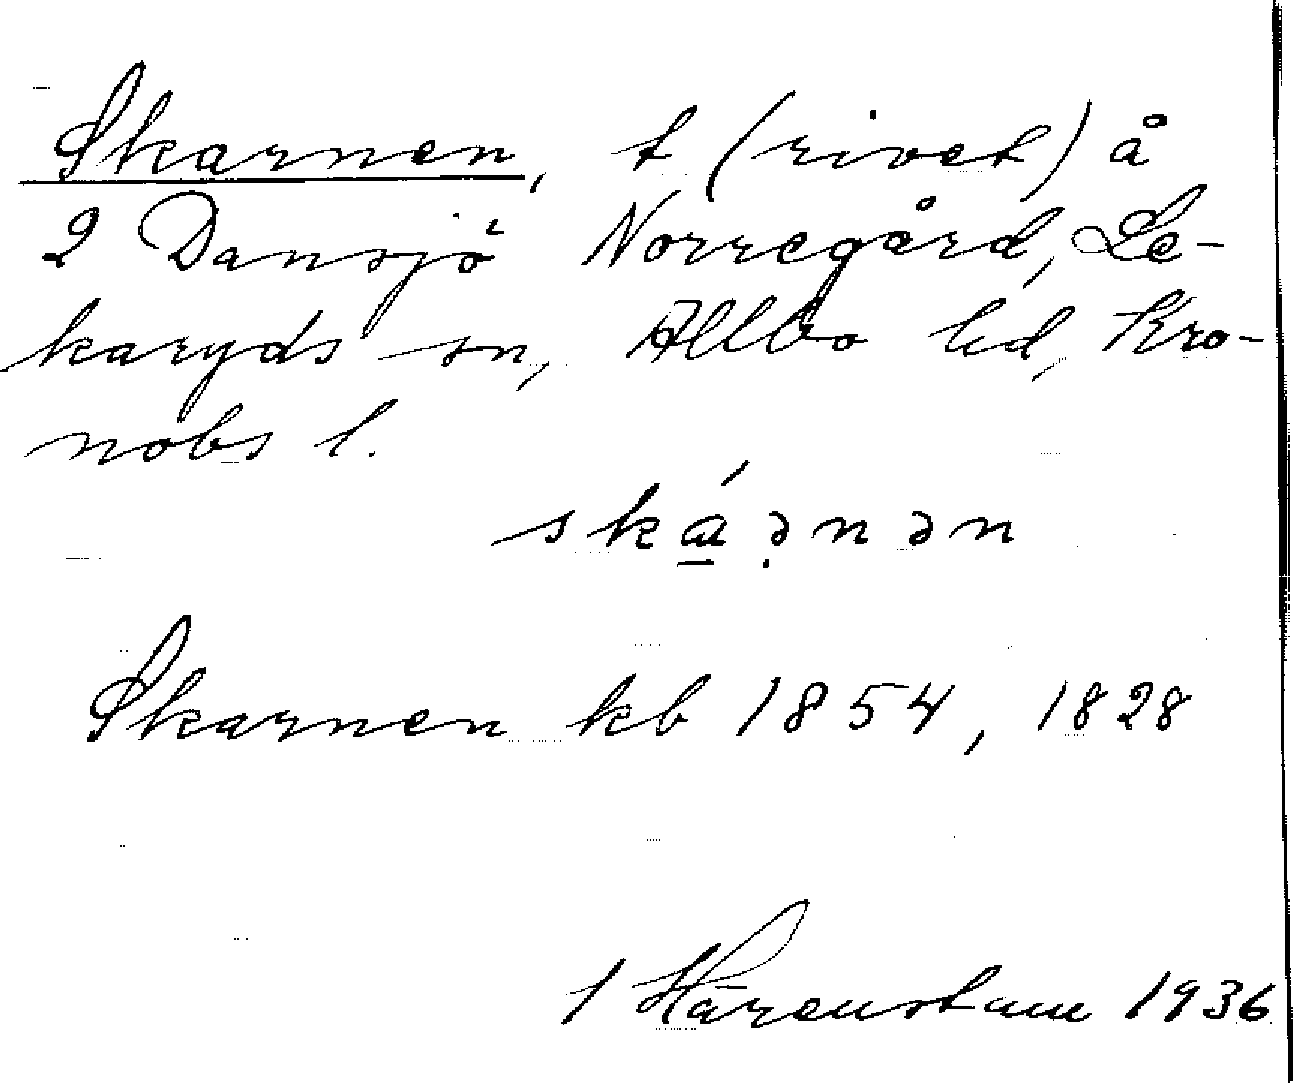 Skarnen, t (rivet) å
2 Dansjö Norregård, Le-
karyds sn, Allbo hd, Kro-
nobs l.
skáənən
Skarnen kb 1854, 1828
1 Härenstam 1936